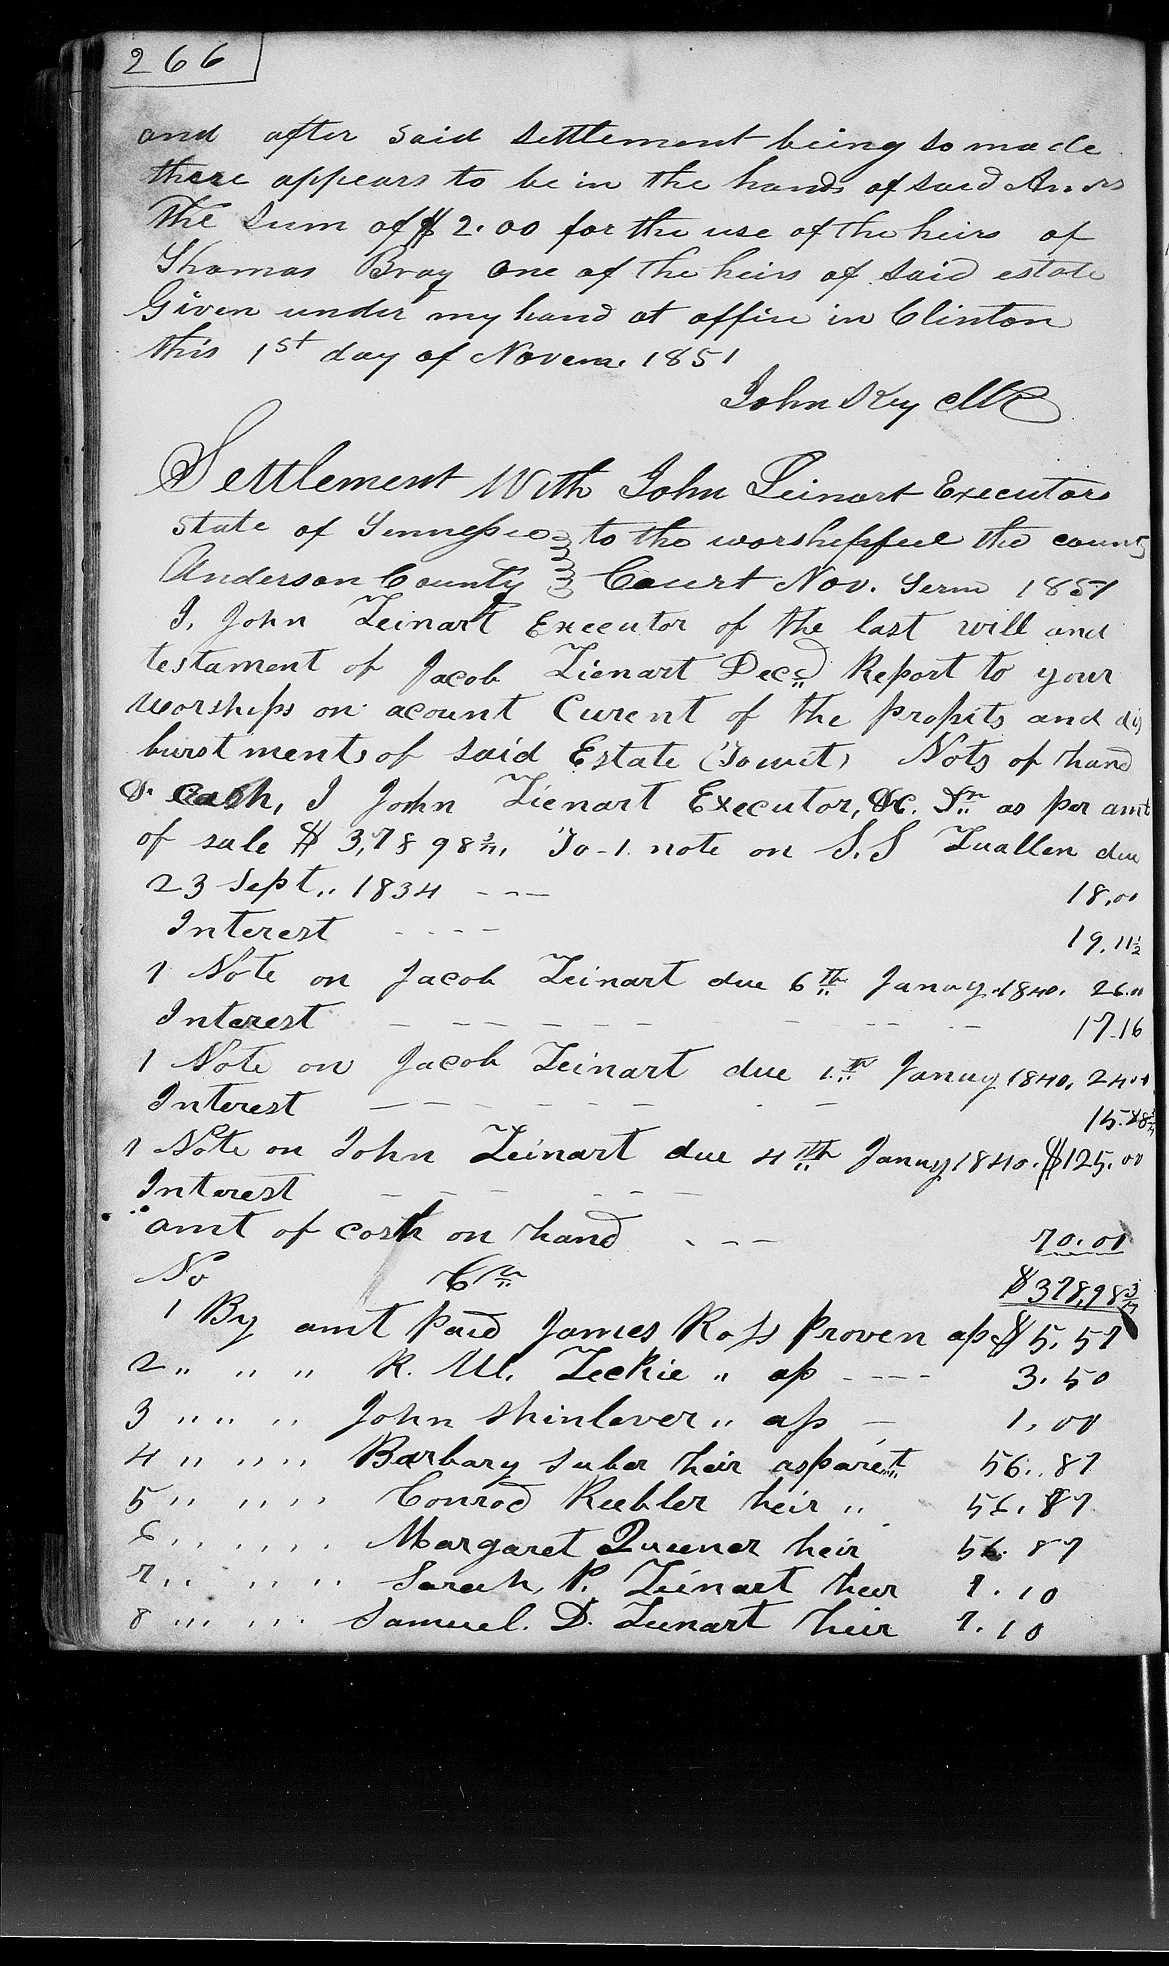 266
and after said settlement being so made
there appears to be in the hands of said
the sum of $ 2.00 for the use of the heirs of
Thomas Bray one of the heirs of said estate
Given under my hand at office in Clinton
this 1st day of Novem. 1851
John Key
Settlement With John Leinart Executors
State of Tennessee to the worshepfull the county
Anderson County Court Nov. Term 1851
I, John Leinart Executor of the last will and
testament of Jacob Lienart Decd Report to your
worships on acount Curent of the profits and dis
burstments of said Estate (Towit) Nots of hand
& Cash, I John Lienart Executor, &c. Dr as per amt
of sale $ 3,78 98 3/4, To 1 note on S. S Luallen due
23 Sept,, 1834 --- 18,00
Interest ---- 19,11 1/2
1 Note on Jacob Leinart due 6th Januy. 1840, 26.00
Interest ---- 17.16
1 Note on Jacob Leinart due 1th Januy 1840, 2400
Interest ---- 15.
1 Note on John Leinart due 4th Januy 1840. $125.00
Interest ----
amt of cash on hand --- 70.00
No Cr $378,98 3/4
1 By amt paid James Ross Proven ap $ 5.57
2 ,, ,, ,, R. M. Leckie ,, ap ---- 3.50
3 ,, ,, ,, John Shinlever ,, ap - 1,00
4 ,, ,, ,, Barbary Suber heir 56.87
5 ,, ,, ,, Conrod Keebler heir ,, 56,87
6 ,, ,, ,, Margaret Queener heir 56.87
7 ,, ,, ,, Sarah, P. Leinart heir 7.10
8 ,, ,, ,, Samuel. D. Leinart heir 7.10